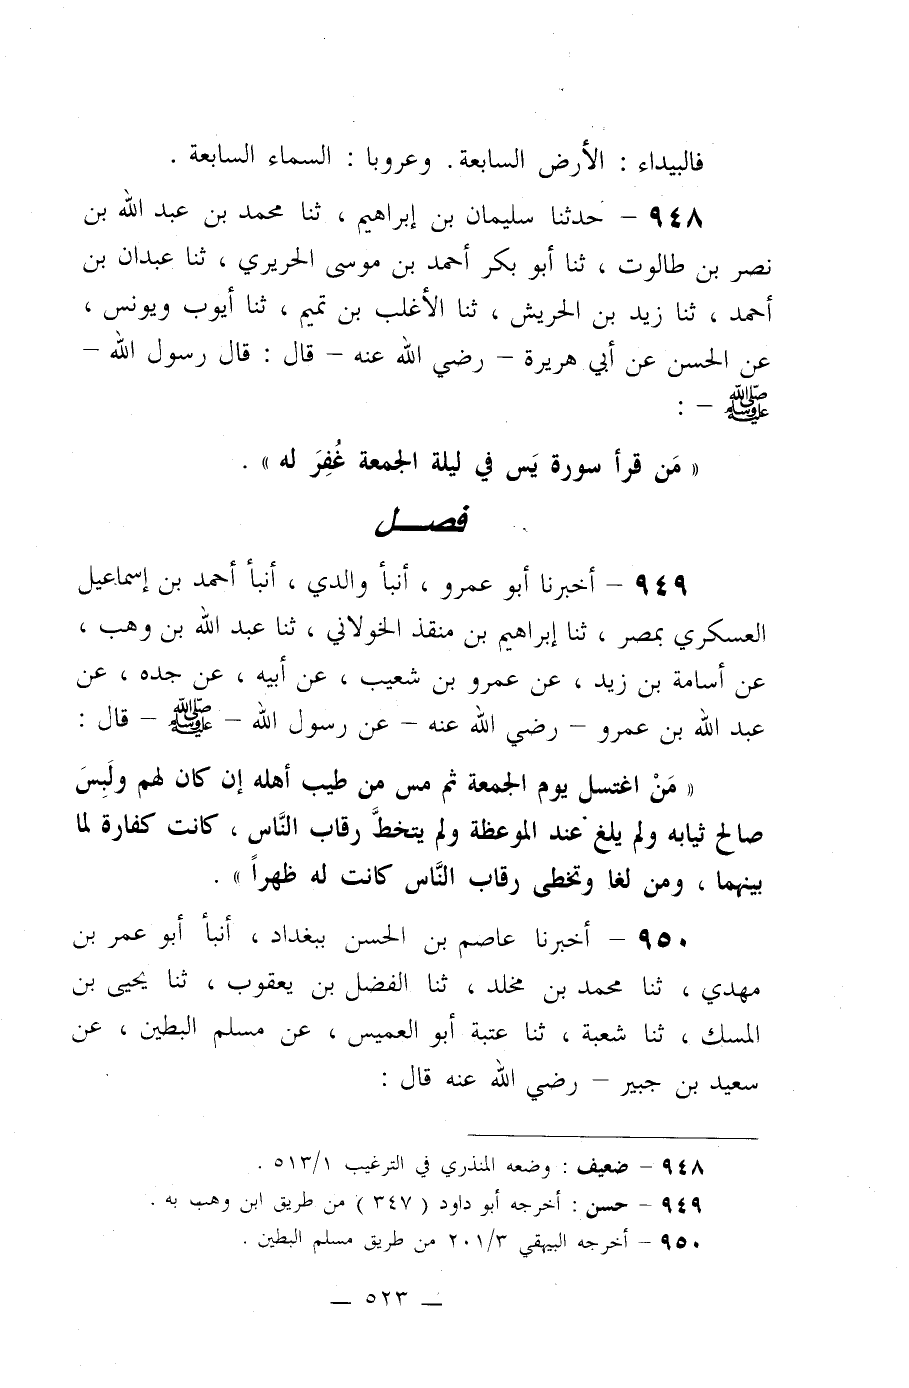 فالبيداء : الأرض السابعة . وعروبا : السماء السابعة .
٩٤٨ – حدثنا سليمان بن إبراهيم ، ثنا محمد بن عبد الله بن
نصر بن طالوت ، ثنا أبو بكر أحمد بن موسى الحريري ، ثنا عبدان بن
أحمد ، ثنا زيد بن الحريش ، ثنا الأغلب بن تميم ، ثنا أيوب ويونس ،
عن الحسن عن أبي هريرة – رضي الله عنه – قال : قال رسول الله –
ﷺ – :
« مَن قرأ سورة يَس في ليلة الجمعة غُفِرَ له » .
فصـــل
٩٤٩ – أخبرنا أبو عمرو ، أنبأ والدي ، أنبأ أحمد بن إسماعيل
العسكري بمصر ، ثنا إبراهيم بن منقذ الخولاني ، ثنا عبد الله بن وهب ،
عن أسامة بن زيد ، عن عمرو بن شعيب ، عن أبيه ، عن جده ، عن
عبد الله بن عمرو – رضي الله عنه – عن رسول الله – ﷺ – قال :
« مَنْ اغتسل يوم الجمعة ثم مس من طيب أهله إن كان لهم ولَبِسَ
صالح ثيابه ولم يلغ عند الموعظة ولم يتخطَّ رقاب النَّاس ، كانت كفارة لما
بينهما ، ومن لغا وتخطى رقاب النَّاس كانت له ظهراً » .
٩٥٠ – أخبرنا عاصم بن الحسن ببغداد ، أنبأ أبو عمر بن
مهدي ، ثنا محمد بن مخلد ، ثنا الفضل بن يعقوب ، ثنا يحيى بن
المسك ، ثنا شعبة ، ثنا عتبة أبو العميس ، عن مسلم البطين ، عن
سعيد بن جبير – رضي الله عنه قال :
٩٤٨ – ضعيف : وضعه المنذري في الترغيب ٥١٣/١ .
٩٤٩ – حسن : أخرجه أبو داود ( ٣٤٧ ) من طريق ابن وهب به .
٩٥٠ – أخرجه البيهقي ٢٠١/٣ من طريق مسلم البطين .
– ٥٢٣ –